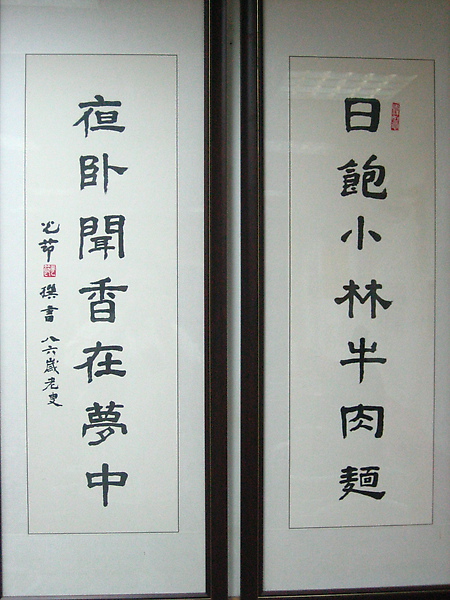 日飽小林牛肉麵
夜卧聞香在夢中
撰書 八六歲老叟